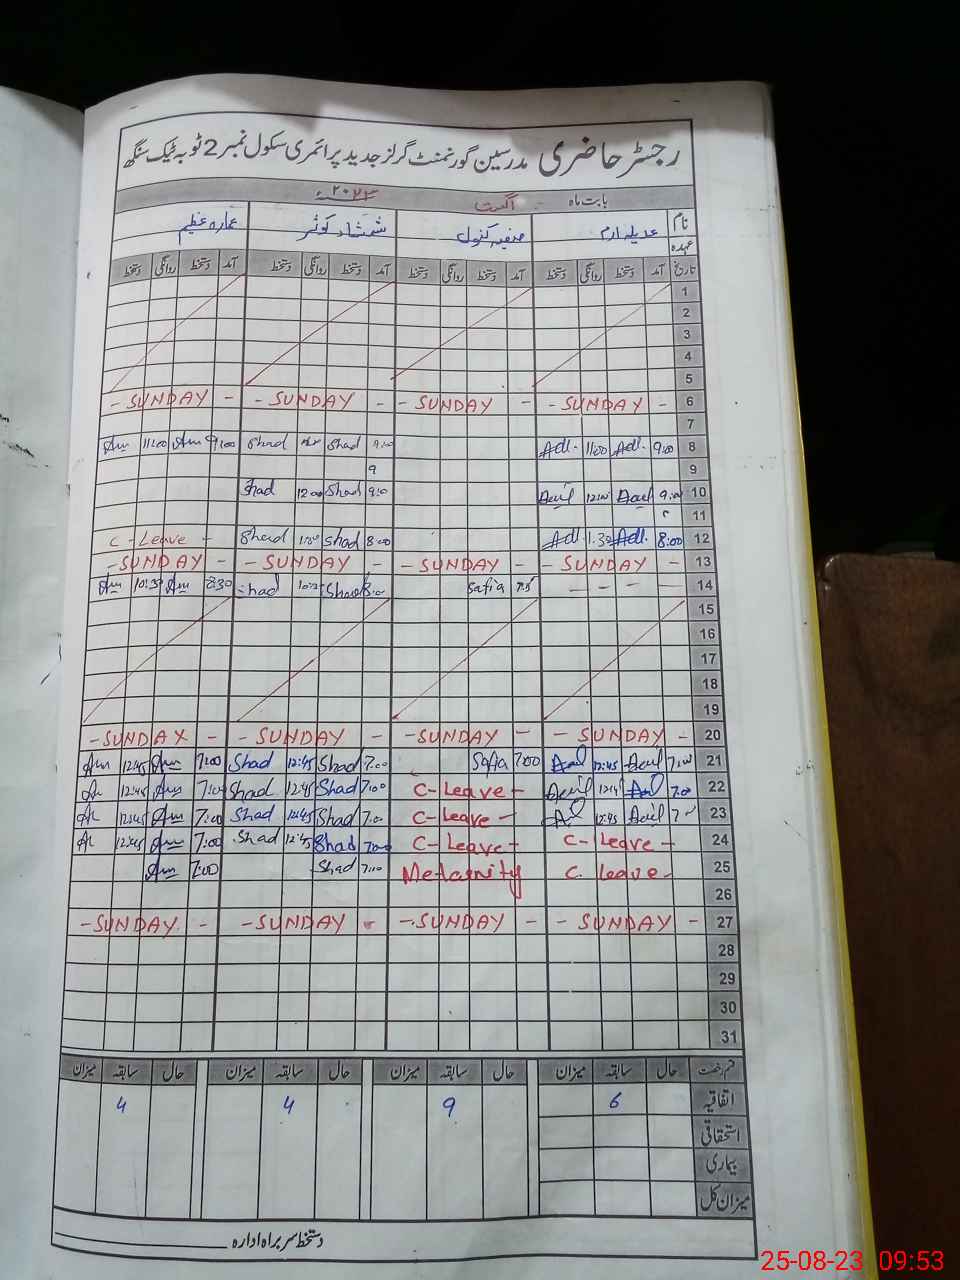 رجسٹر حاضری مدرسین گورنمنٹ گرلز جدید پرائمری سکول نمبر 2 ٹوبہ ٹیک سنگھ
بابت ماہ اگست ۲۰۲۳ء
نام عدیلہ ارم صفیہ کنول شمشاد کوثر عمارہ عظیم
عہدہ
تاریخ آمد دستخط روانگی دستخط آمد دستخط روانگی دستخط آمد دستخط روانگی دستخط آمد دستخط روانگی دستخط
1
2
3
4
5
- SUNDAY - - SUNDAY - - SUNDAY - - SUNDAY - 6
7
Am 11:00 Am 9:00 Shad Shad 9:00 Adl. 11:00 Adl. 9:00 8
9 9
Shad 12:00 Shad 9:0 12:00 9:00 10
11
C - Leave - Shad 1:30 Shad 8:00 Adl 1.30 Adl. 8:00 12
- SUNDAY - - SUNDAY - - SUNDAY - - SUNDAY - 13
Am 10:30 Am 8:30 Shad Shad 8:0 Safia 7.5 - - - - 14
15
16
17
18
19
- SUNDAY - - SUNDAY - - SUNDAY - - SUNDAY - 20
Am 12:45 Am 7:00 Shad 12:45 Shad 7.00 Safia 7:00 12:45 7:00 21
12:45 Am 7:00 Shad 12:45 Shad 7:00 C-Leave - 7:00 22
12:45 Am 7:00 Shad 12:45 Shad 7:00 C-Leave - 12:45 7 23
12:45 Am 7:00 Shad 12:45 Shad 7:00 C-Leave - C-Leave - 24
Am 7:00 Shad 7:00 Meternity C. Leave - 25
26
- SUNDAY - - SUNDAY - - SUNDAY - - SUNDAY - 27
28
29
30
31
قسم رخصت حال سابقہ میزان حال سابقہ میزان حال سابقہ میزان حال سابقہ میزان
اتفاقیہ 6 9 4 4
استحقاقی
بیماری
میزان کل
دستخط سربراہ ادارہ
25-08-23 09:53